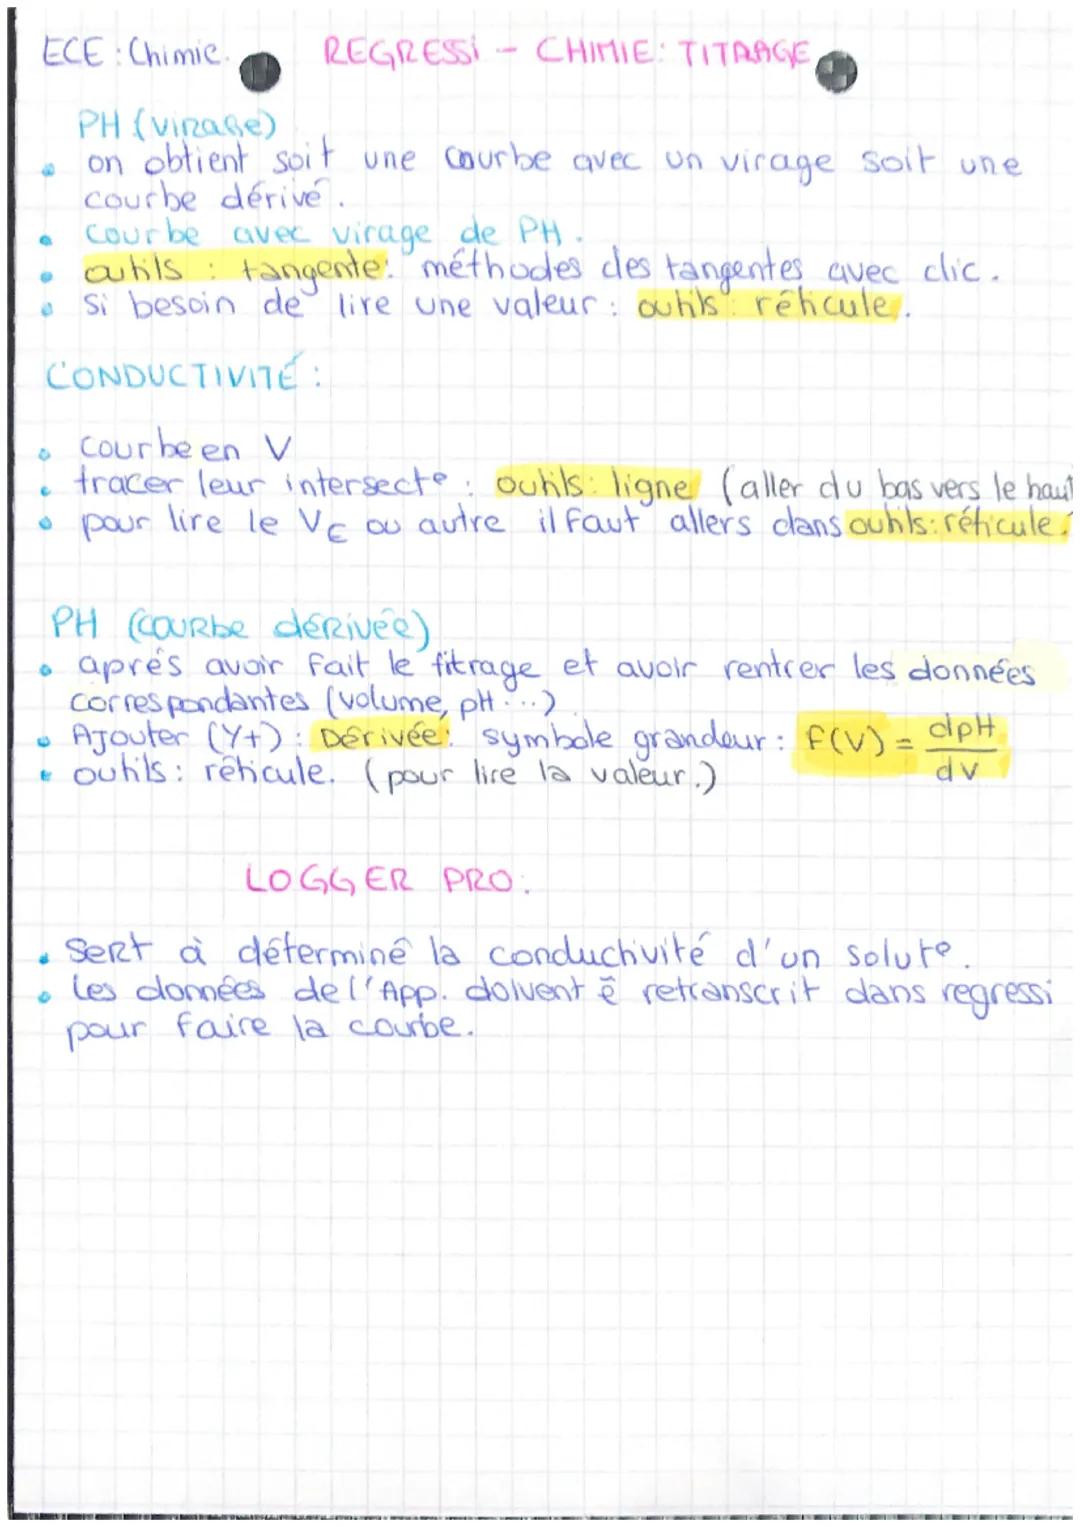 ECE : Chimie. REGRESSi - CHIMIE: TITRAGE
PH (virage)
on obtient soit une courbe avec un virage soit une
courbe dérivé.
courbe avec virage de PH.
outils : tangente: méthodes des tangentes avec clic.
Si besoin de lire une valeur : outils : réticule.
CONDUCTIVITÉ :
Courbe en V
tracer leur intersecto : outils: ligne (aller du bas vers le haut
pour lire le VE ou autre il faut allers dans outils: réticule.
PH (COURbe déRivée)
aprés avoir fait le titrage et avoir rentrer les données
correspondantes (volume, pH ...)
AJouter (Y+) : Dérivée: symbole grandeur : f(V) = dpH
dv
outils : réticule. (pour lire la valeur.)
LOGGER PRO:
SeRt à déterminé la conductivité d'un soluto.
Les données de l'App. doivent ê retranscrit dans regressi
pour faire la courbe.